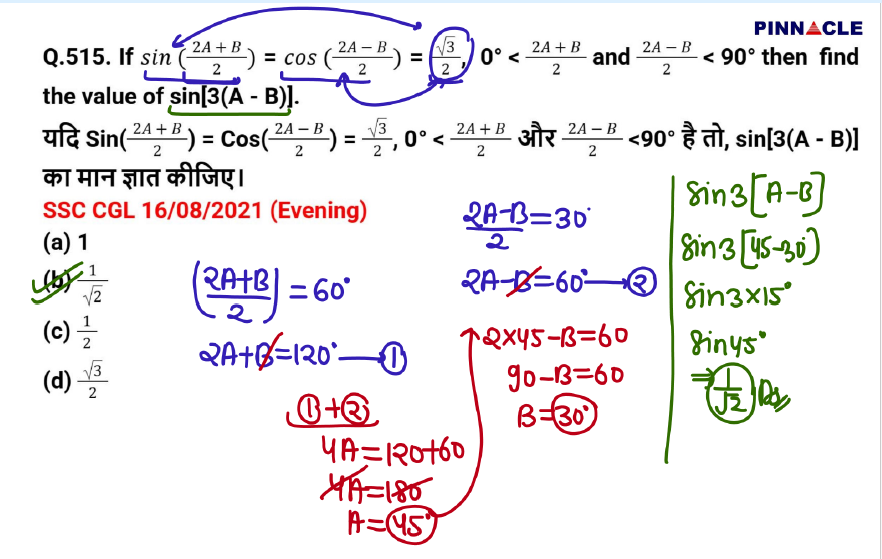 PINNACLE
Q.515. If sin (2A + B / 2) = cos (2A − B / 2) = √3/2, 0° < 2A + B / 2 and 2A − B / 2 < 90° then find
the value of sin[3(A - B)].
यदि Sin(2A + B / 2) = Cos(2A − B / 2) = √3/2, 0° < 2A + B / 2 और 2A − B / 2 <90° है तो, sin[3(A - B)]
का मान ज्ञात कीजिए।
SSC CGL 16/08/2021 (Evening)
(a) 1
(b) 1/√2
(c) 1/2
(d) √3/2
(2A+B / 2) = 60°
2A+B=120° ①
①+②
4A=120+60
4A=180
A=45°
2A-B / 2 = 30°
2A-B=60° ②
2×45-B=60
90-B=60
B=30°
Sin3[A-B]
Sin3[45-30]
Sin3×15°
Sin45°
⇒ 1/√2